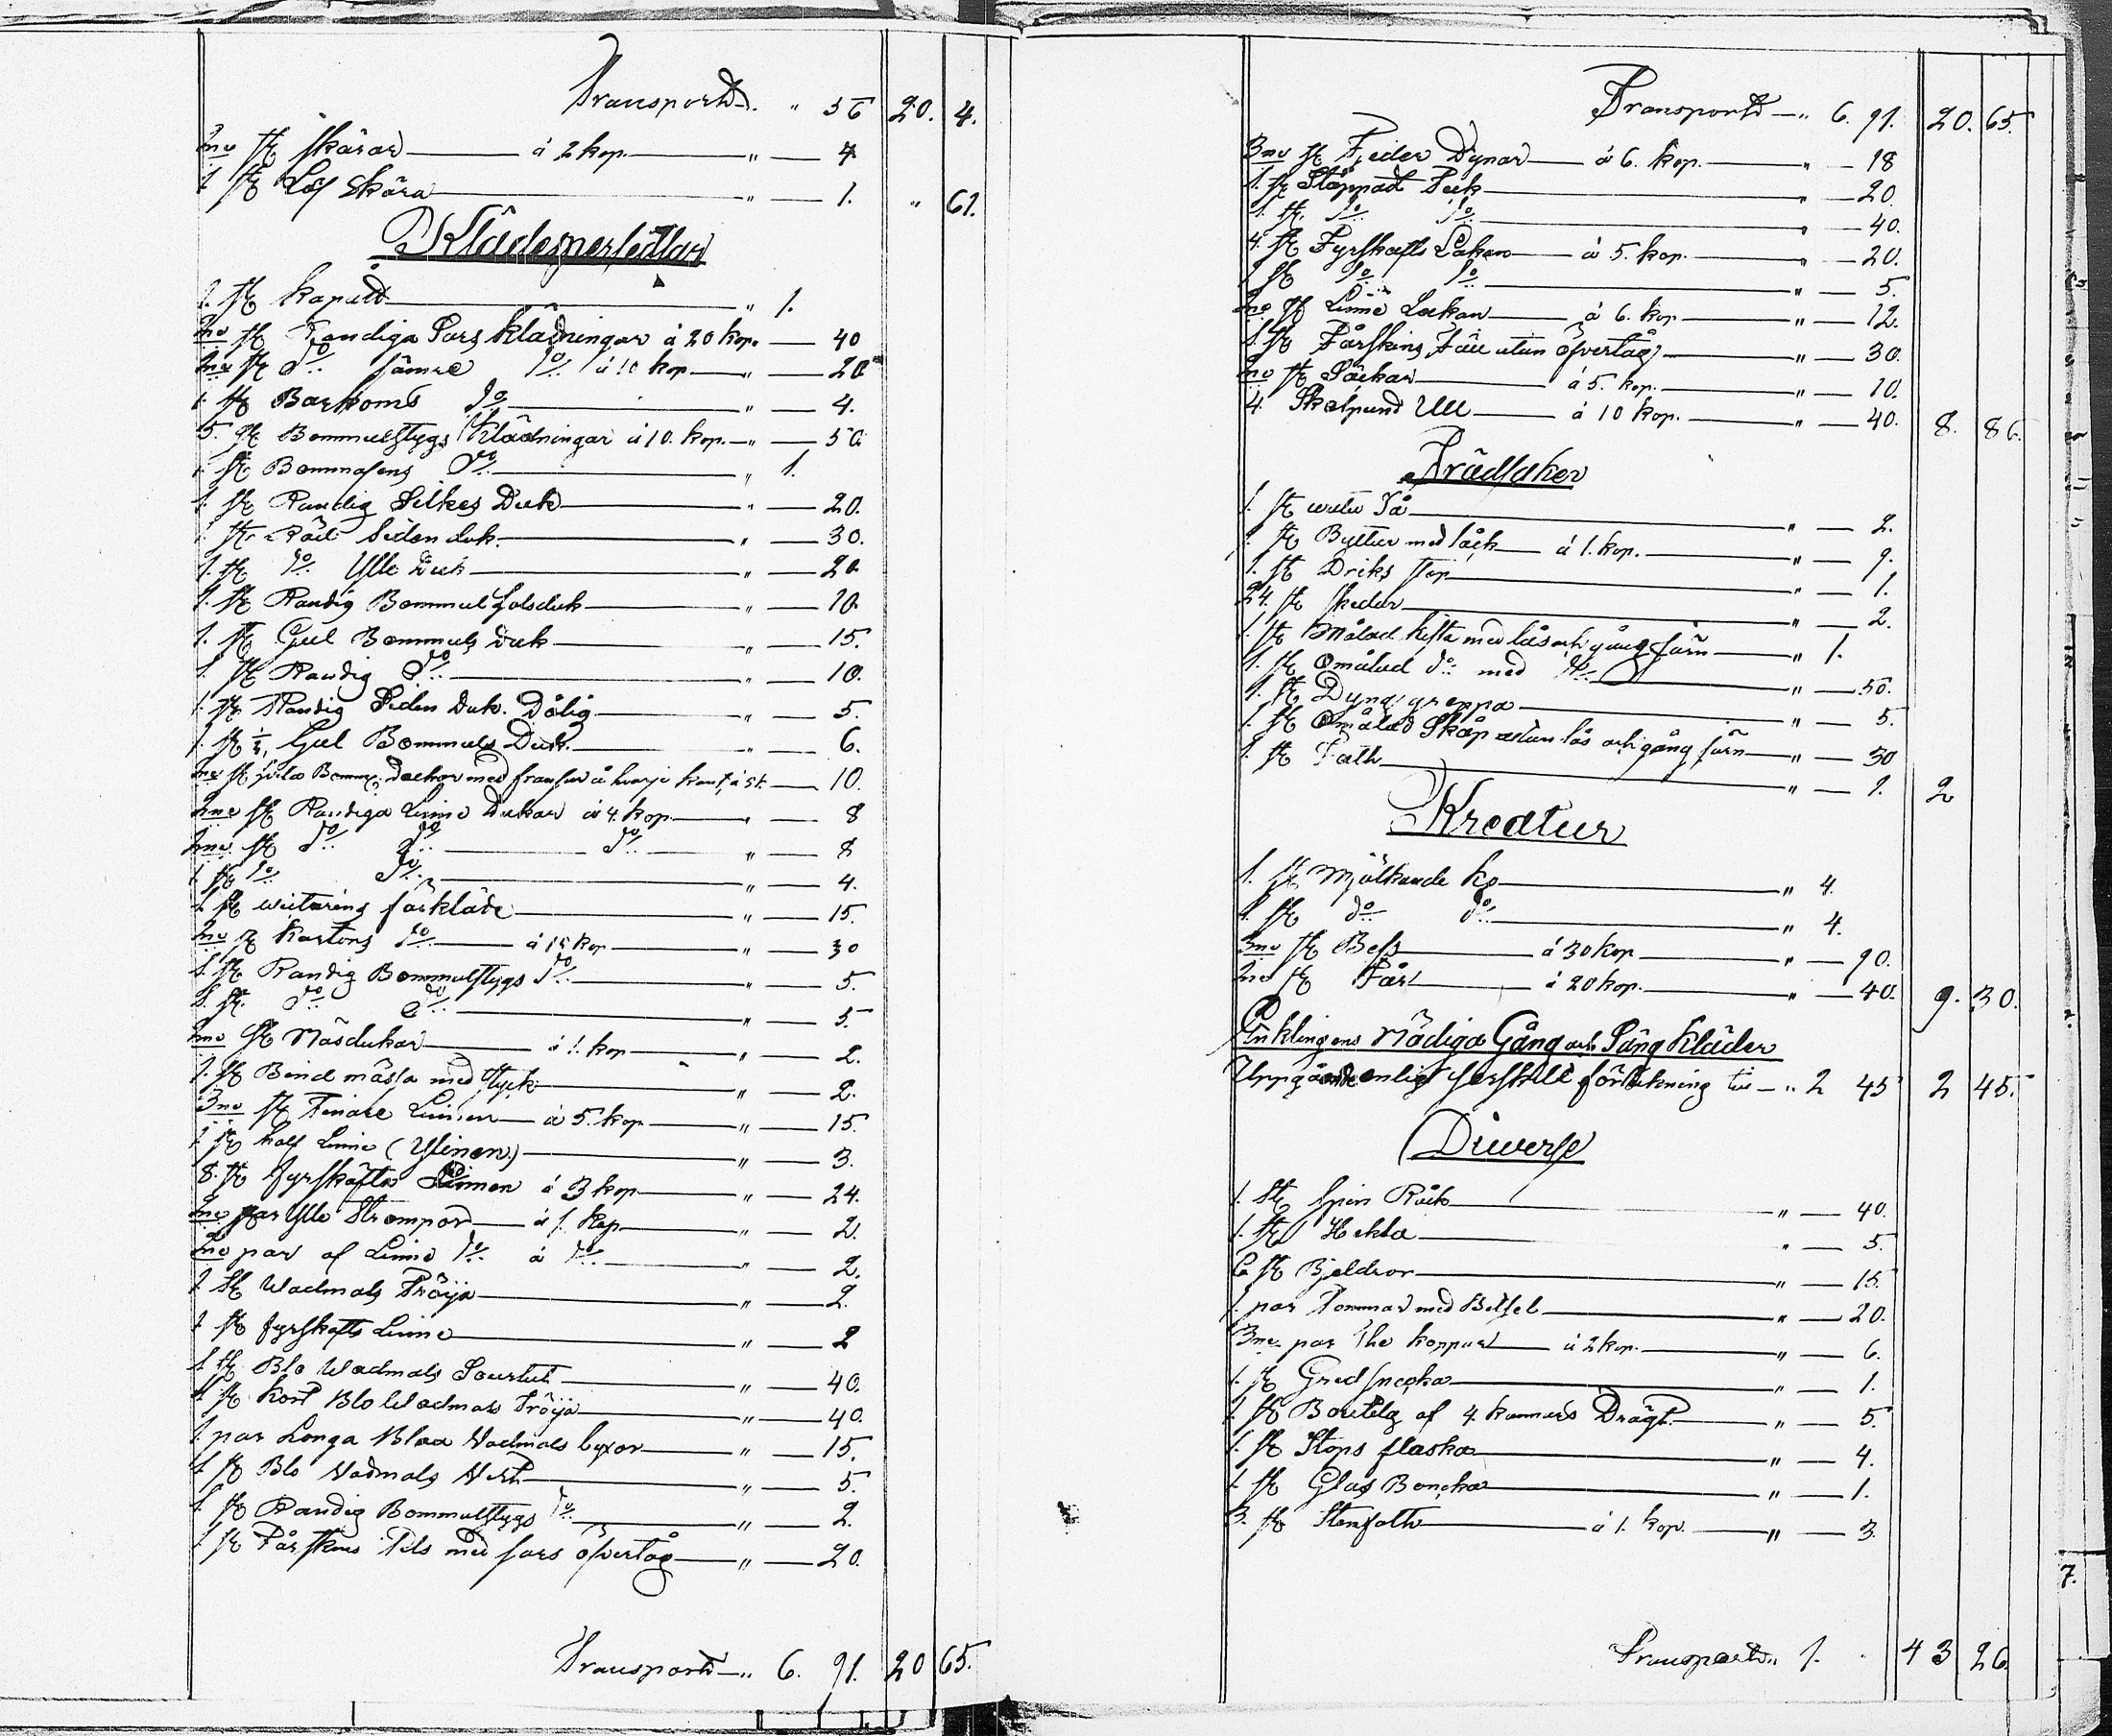 Transport „ 56 20. 4.
2ne st Skäror á 2 kop. „ — 4
1 st Löf Skära „ — 1. „ 61.
Klädespersedlar
1. st Kapult „ 1.
2ne st Randiga Sars Klädningar á 20 kop. — 40
2ne st do sämre do á 10 kop „ — 20
1. st Barkoms do „ — 4.
5. st Bommulstygs Klädningar á 10. kop. „ — 50.
1. st Bommasens do „ 1.
1. st Randig Silkes Duk „ — 20.
1. st Röd Siden duk „ — 30.
1. st do Ylle Duk „ — 20.
1. st Randig Bommul halsduk „ — 10.
1. st Gul Bommuls Duk „ — 15.
1. st Randig do „ — 10.
1. st Randig Siden Duk. Dålig „ — 5.
1. st ½ Gul Bommuls Duk „ — 6.
2ne st hvita Bomm: Dukar med fransar å hvarje kant, á 5 k. — 10.
2ne st Randiga Linne Dukar á 4 kop „ — 8
2ne st do do do „ — 8
1 st do do „ — 4.
1 st förkläde „ — 15.
2ne st Kartons do á 15 kop „ — 30
1 st Randig Bommulstygs do „ — 5.
1. st do do „ — 5.
2ne st Näsdukar á 1. kop „ — 2.
1. st Bind mössa med stycke „ — 2.
3ne st Finare Linnen á 5. kop „ — 15.
1 st half Linne (Ylinen) „ — 3.
8. st fyrskäfta Linnen á 3 kop „ — 24.
2ne par Ylle Strumpor á 1. kop „ — 2.
2ne par af Linne do á do „ — 2.
1 st Wadmals Tröija „ — 2.
1 st fyrskafts Linne „ — 2
1. st Blo Wadmals Sourtut „ — 40.
1. st Kort Blo Wadmals Tröija „ — 40.
1. par Longa Bloa Vadmals byxor „ — 15.
1. st Blo Vadmals Vest „ — 5.
1. st Randig Bommulstygs do „ — 2.
1 st Fårskins Pels med sars öfvertåg „ — 20.
Transport „ 6. 91. 20 65.
Transport „ 6. 91. 20. 65.
3ne st Fjeder Dynar á 6. kop. „ — 18
1. st Stoppad Seck „ — 20.
1. st. do do „ — 40.
4. st Fyrskafts Lakan á 5. kop. „ — 20.
1 st do do „ — 5.
2ne st Linne Lakan á 6. kop „ — 12.
1 st Fårskins Fäll utan öfvertåg „ — 30.
2ne st Säckar á 5. kop. „ — 10.
4. Skålpund Ull á 10 kop. „ — 40. 8. 86.
Trädsaker
1. st Så „ — 2.
st Byttur med låck á 1. kop. „ — 9.
1. st Driks stop „ — 1.
24. st skedar „ — 2.
1. st Målad kista med lås och gång järn „ 1.
1. st Omålad do med do „ — 50.
1. st Dyng greppa „ — 5.
1 st Omålad Skåp utan lås och gång järn „ — 30
1. st Fath „ — 1. 2
Kreatur
1. st Mjölkande ko „ 4.
1. st do do „ 4.
3ne st Bess á 30 kop „ — 90.
2ne st Får á 20 kop. „ — 40. 9. 30.
Enklingens Nödiga Gång och Säng Kläder
Uppgående enligt serskild förtekning till „ 2 45 2 45.
Diverse
1. st Spin Råck „ — 40.
1. st Hekla „ — 5.
6 st Bjeldror „ — 15.
1. par Tömmar med Betsel „ — 20.
3ne par The koppar á 2 kop. „ — 6.
1. st Gredsnecka „ — 1.
1. st Boutelg af 4. kannors Drägt „ — 5.
1. st Stops flaska „ — 4.
1 st Glas Boncka „ — 1.
3. st Stenfath á 1. kop. „ — 3.
Transport „ 1. 43 26.
7.